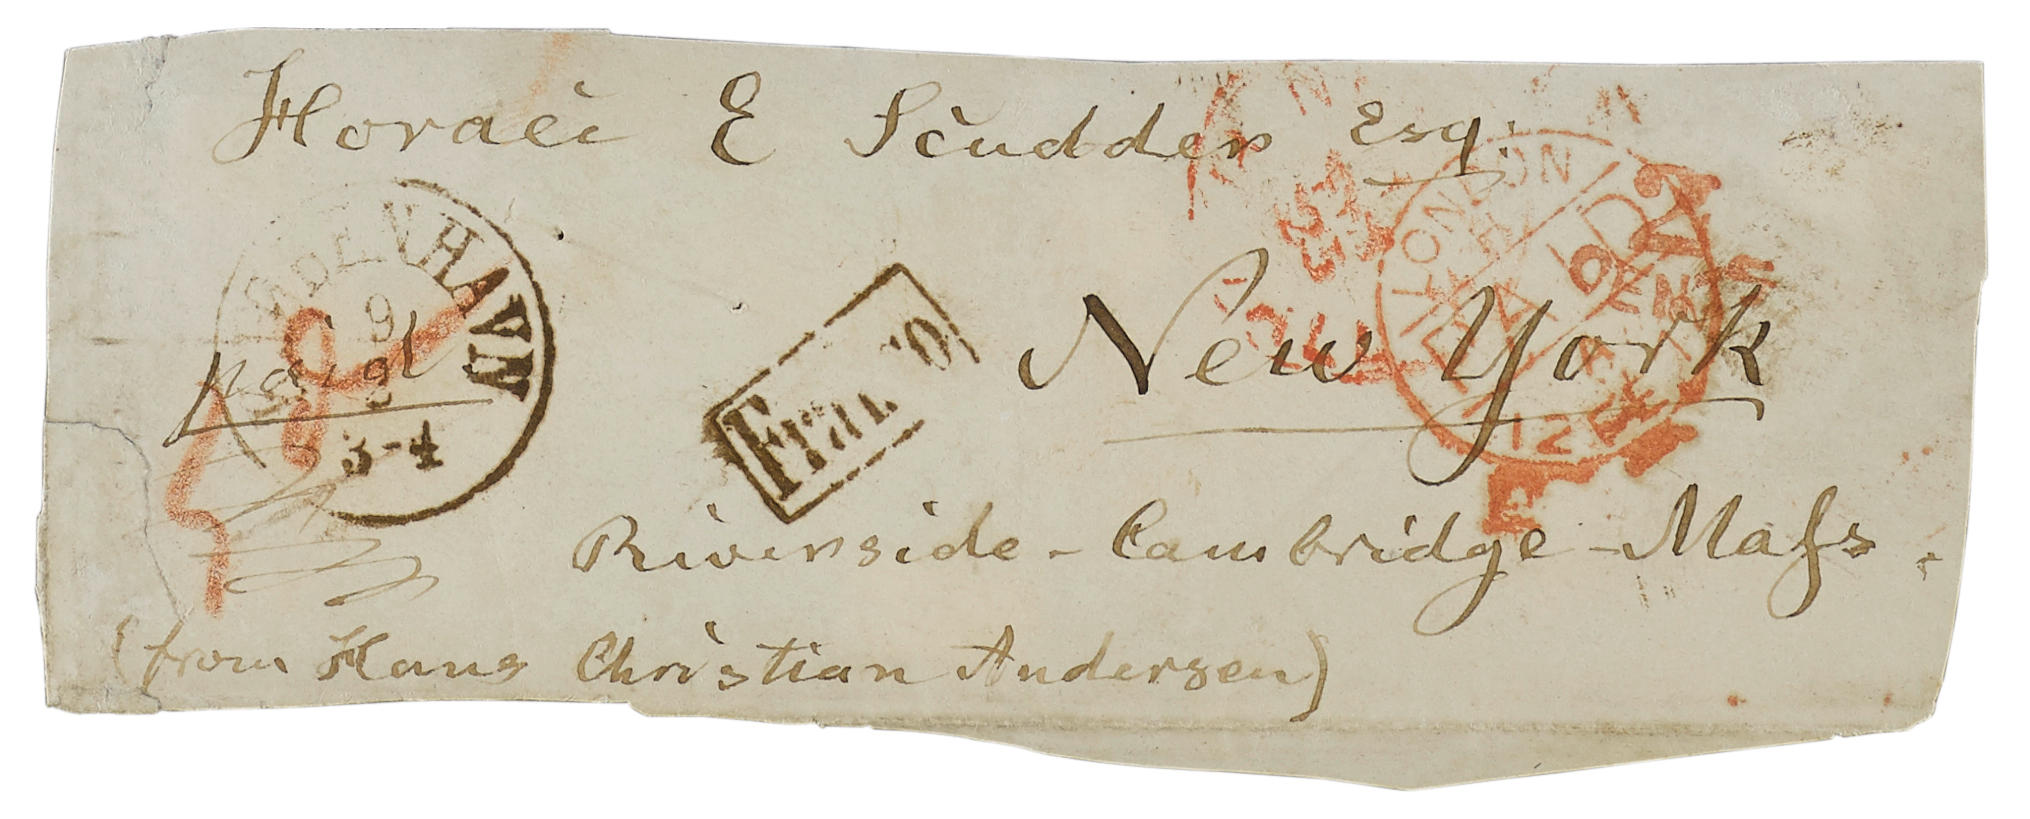 Horace E Scudder Esq.
KJØBENHAVN
9
3-4
paid
Franco
New York
LONDON
PAID
12
Riverside - Cambridge - Mass.
(from Hans Christian Andersen)